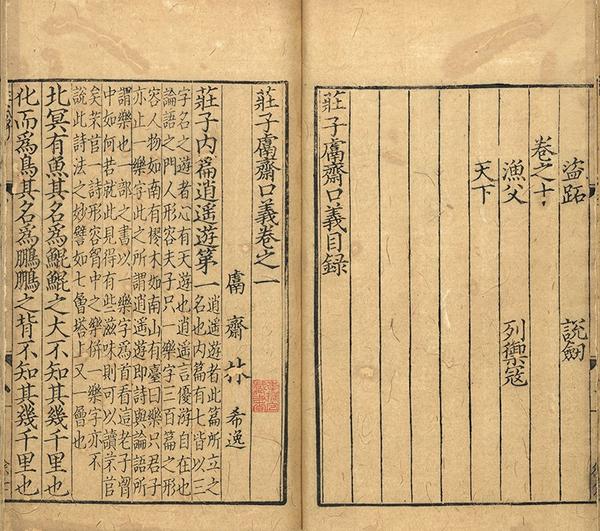 盜跖　說劒
卷之十
漁父　列禦寇
天下
莊子鬳齋口義目録
莊子鬳齋口義卷之一
鬳齋　林　希逸
莊子内篇逍遥遊第一
逍遥遊者此篇所立之
名也内篇有七皆以三
字名之遊者心有天遊也逍遥言優游自在也
論語之門人形容夫子只一樂字三百篇之形
容人物如南有樛木如南山有臺曰樂只君子
亦止一樂字此之所謂逍遥遊即詩與論語所
謂樂也一部之書以一樂字爲首看這老子胷
中如何若就此見得有些滋味則可以讀芣苢
矣芣苢一詩形容胷中之樂併一樂字亦不
說此詩法之妙譬如七層塔上又一層也
北冥有魚其名爲鯤鯤之大不知其幾千里也
化而爲鳥其名爲鵬鵬之背不知其幾千里也